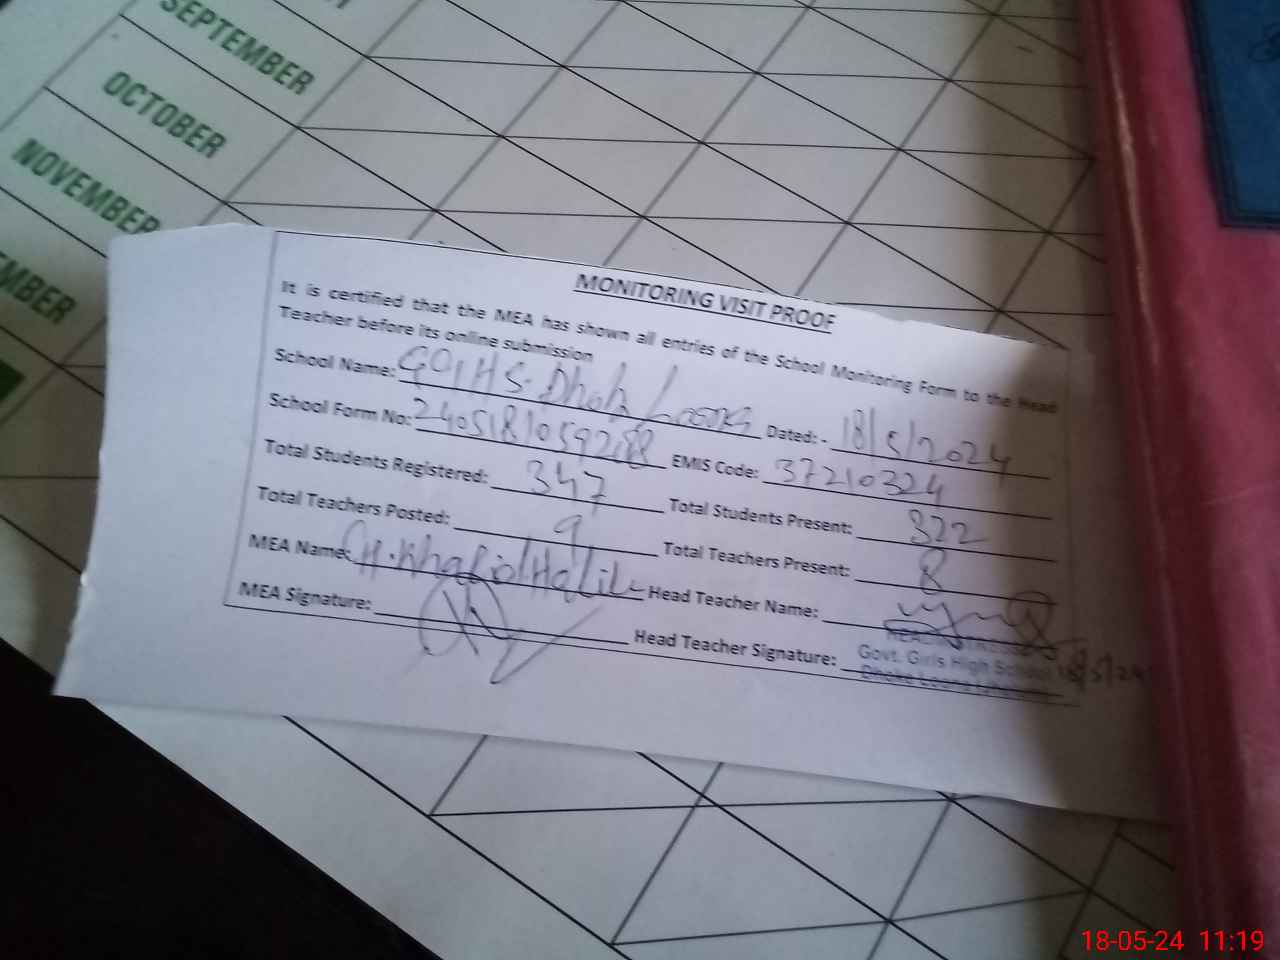 SEPTEMBER
OCTOBER
NOVEMBER
EMBER
MONITORING VISIT PROOF
It is certified that the MEA has shown all entries of the School Monitoring Form to the Head
Teacher before its online submission
School Name: GGHS. Dhok Loona Dated: - 18/5/2024
School Form No: EMIS Code: 37210324
Total Students Registered: 347 Total Students Present: 322
Total Teachers Posted: 9 Total Teachers Present: 8
MEA Name: CH. Head Teacher Name:
MEA Signature: Head Teacher Signature:
Govt. Girls High School 18/5/24
Dhoke Loona
18-05-24 11:19